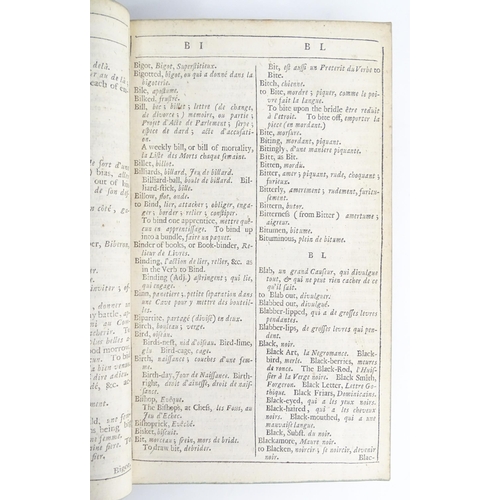 B I
Bigot, Bigot, Superstitieux.
Bigotted, bigot, ou qui a donné dans la
bigoterie.
Bile, apostume.
Bilked, frustré.
Bill, bec; billet; lettre (de change,
de divorce;) mémoire, ou partie;
Projet d'Acte de Parlement; serpe;
espéces de dard; acte d'accusati-
on.
A weekly bill, or bill of mortality,
la Liste des Morts chaque semaine.
Billet, billot.
Billiards, billard, Jeu de billard.
Billiard-ball, boule de billard. Bil-
liard-stick, bille.
Billow, flot, onde.
to Bind, lier, attacher; obliger, enga-
ger; border; relier; constiper.
To bind one apprentice, mettre quel-
cun en apprentissage. To bind up
into a bundle, faire un paquet.
Binder of books, or Book-binder, Re-
lieur de Livres.
Binding, l'action de lier, relier, &c. as
in the Verb to Bind.
Binding (Adj.) astringent; qui lie,
qui engage.
petite séparation dans
une Cave pour y mettre des bouteil-
les.
Bipartite, partagé (divisé) en deux.
Birch, bouleau; verge.
Bird, oiseau.
Birds-nest, nid d'oiseau. Bird-lime,
glu. Bird-cage, cage.
Birth, naissance; couches d'une fem-
me.
Birth-day, Jour de Naissance. Birth-
right, droit d'ainesse, droit de nais-
sance.
Bishop, Evêque.
The Bishops, at Chess, les Fous, au
Jeu d'Echec.
Bishoprick, Evêché.
Bisket, biscuit.
Bit, morceau; frein, mors de bride.
To draw bit, debrider.
B L
Bit, est aussi un Preterit du Verbe to
Bite.
Bitch, chienne.
to Bite, mordre; piquer, comme le poi-
vre fait la langue.
To bite upon the bridle, être reduit
à l'etroit. To bite off, emporter la
piece (en mordant.)
Bite, morsure.
Biting, mordant, piquant.
Bitingly, d'une maniere piquante.
Bitt, as Bit.
Bitten, mordu.
Bitter, amer; piquant, rude, choquant;
furieux.
Bitterly, amerement; rudement, furieu-
sement.
Bittern, butor.
Bitterness (from Bitter) amertume;
aigreur.
Bitumen, bitume.
Bituminous, plein de bitume.
B L
Blab, un grand Causeur, qui divulgue
tout, & qui ne peut rien cacher de ce
qu'il sait.
to Blab out, divulguer.
Blabbed out, divulgué.
Blabber-lipped, qui a de grosses levres
pendantes.
Blabber-lips, de grosses levres qui pen-
dent.
Black, noir.
Black Art, la Negromance. Black-
bird, merle. Black-berries, meures
de ronce. The Black-Rod, l'Huis-
sier à la Verge noire. Black Smith,
Forgeron. Black Letter, Lettre Go-
thique. Black Friars, Dominicains.
Black-eyed, qui a les yeux noirs.
Black-haired, qui a les cheveux
noirs. Black-mouthed, qui a une
mauvaise langue.
Black, Subst. du noir.
Blackamore, Maure noir.
to Blacken, noircir; se noircir, devenir
noir.
Blac-